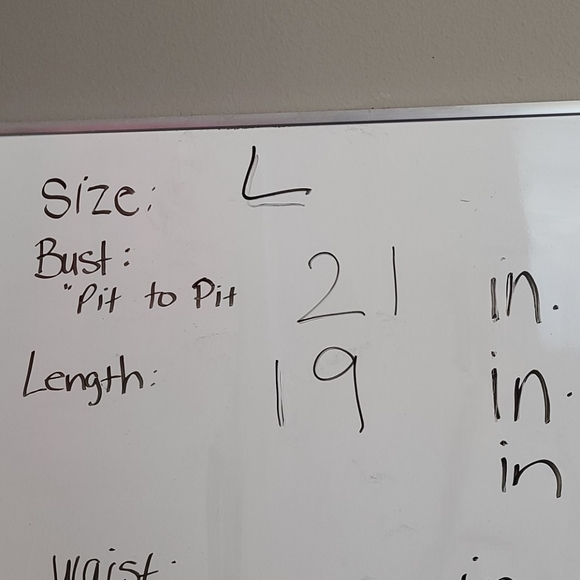 Size: L
Bust:
"Pit to Pit 21 in.
Length: 19 in.
in
Waist: in